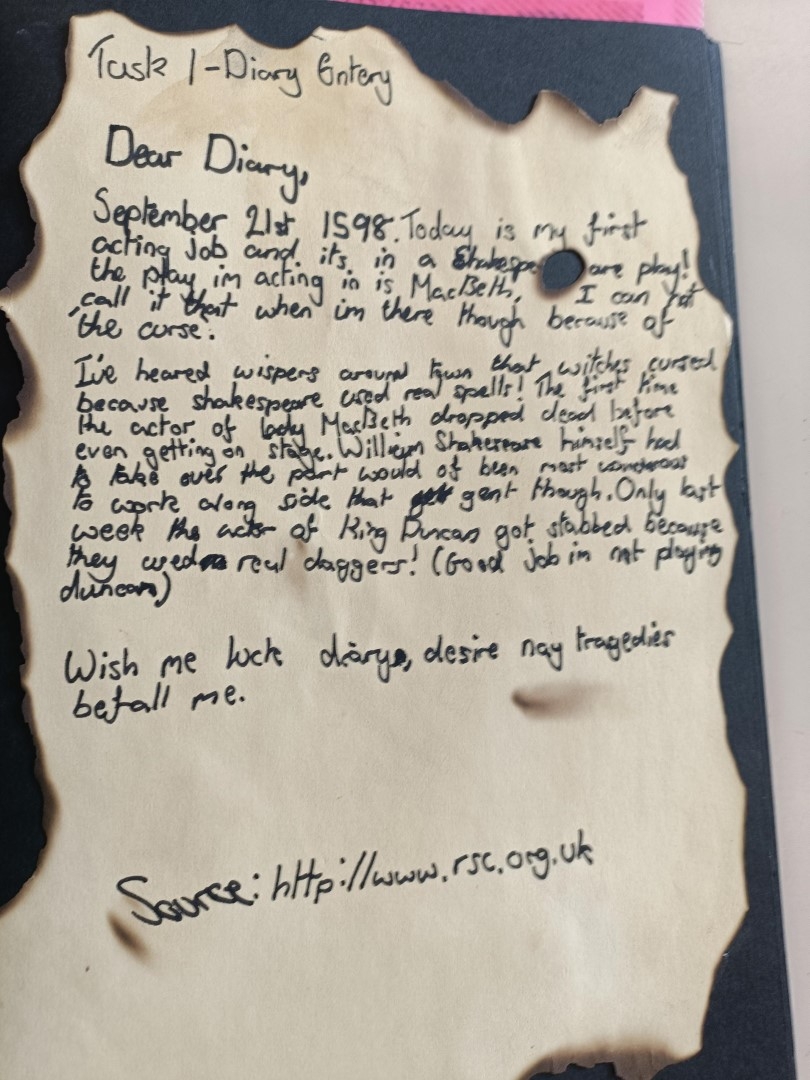 Task 1-Diary Entery
Dear Diary,
September 21st 1598. Today is my first
acting job and its in a Shakespeare play!
the play im acting in is MacBeth, I can not
call it that when im there though because of
the curse.
I've heared wispers around town that witches cursed
because shakespeare used real spells! The first time
the actor of lady MacBeth dropped dead before
even getting on stage. William Shakespeare himself had
to take over the part would of been most wonderous
to work along side that gent though. Only last
week the actor of King Duncan got stabbed because
they used real daggers! (Good job im not playing
duncan)
Wish me luck diary, desire nay tragedies
befall me.
Source: http://www.rsc.org.uk